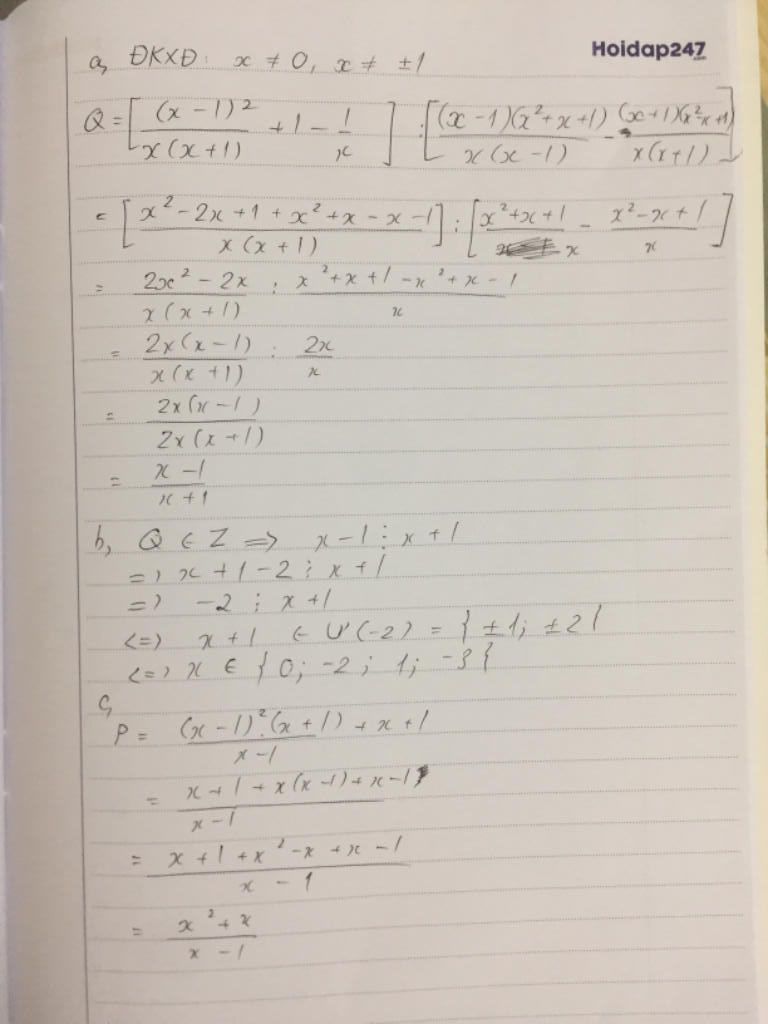 Hoidap247.com
a, ĐKXĐ: x ≠ 0, x ≠ ±1
Q = [(x - 1)² / x(x + 1) + 1 - 1/x] : [(x - 1)(x² + x + 1) / x(x - 1) - (x + 1)(x² - x + 1) / x(x + 1)]
= [x² - 2x + 1 + x² + x - x - 1 / x(x + 1)] : [x² + x + 1 / x - x² - x + 1 / x]
= 2x² - 2x / x(x + 1) : x² + x + 1 - x² + x - 1 / x
= 2x(x - 1) / x(x + 1) : 2x / x
= 2x(x - 1) / 2x(x + 1)
= x - 1 / x + 1
b, Q ∈ Z => x - 1 ⋮ x + 1
=> x + 1 - 2 ⋮ x + 1
=> -2 ⋮ x + 1
<=> x + 1 ∈ Ư(-2) = {±1; ±2}
<=> x ∈ {0; -2; 1; -3}
c,
P = (x - 1)².(x + 1) + x + 1 / x - 1
= x + 1 + x(x - 1) + x - 1 / x - 1
= x + 1 + x² - x + x - 1 / x - 1
= x² + x / x - 1